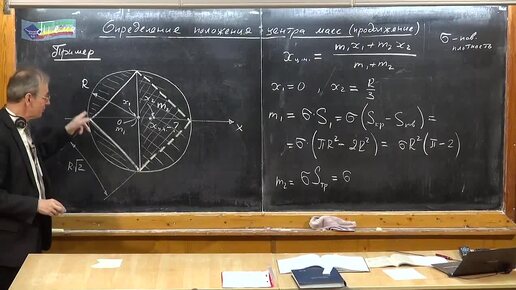 Определение положения центра масс (продолжение)
Пример
R
x₁
x₂
0
m₁
m₂
xц.м.-?
x
R√2
xц.м. = (m₁x₁ + m₂x₂) / (m₁ + m₂)
σ - пов. плотность
x₁ = 0 , x₂ = R/3
m₁ = σ·S₁ = σ(Sкр - Sкв) =
= σ(πR² - 2R²) = σR²(π-2)
m₂ = σSтр = σ